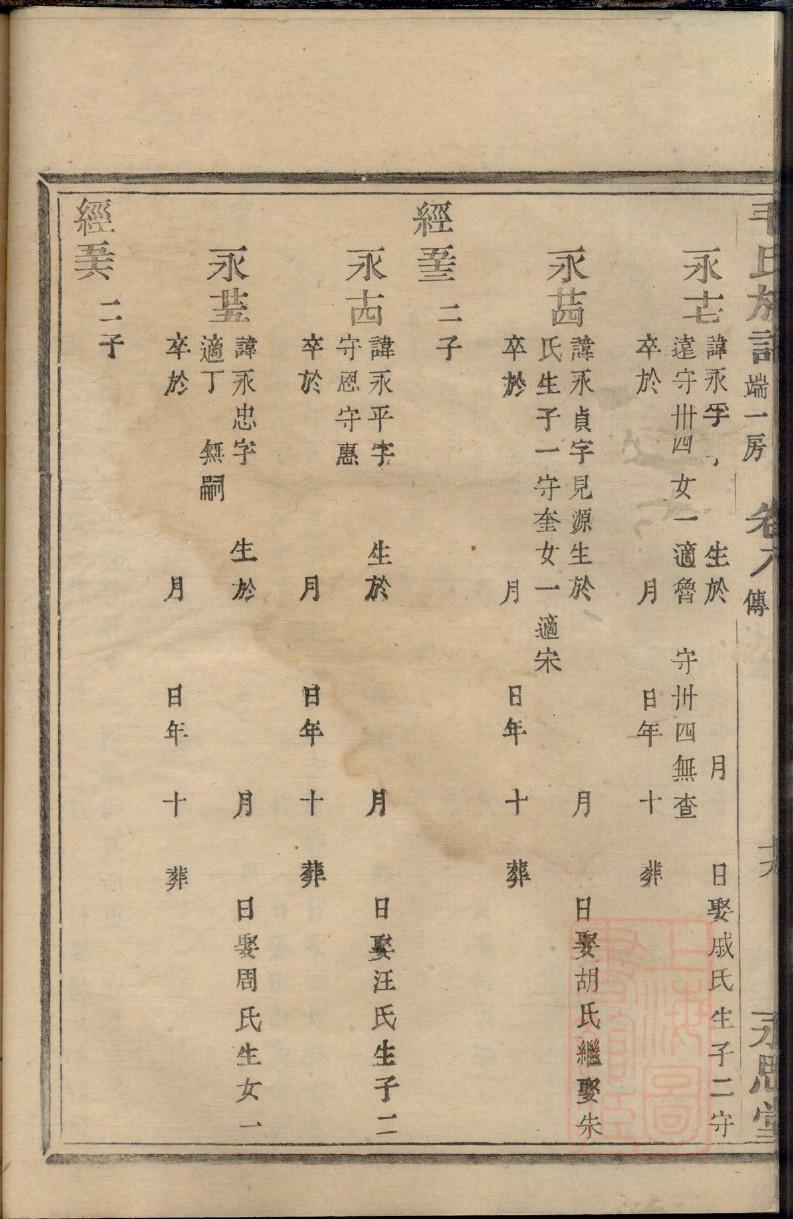 毛氏族譜 端一房 卷六 傳 永思堂
諱永孚 生於 月 日娶戚氏生子二守
永 遠守卅四女一適魯 守卅四無查
卒於 月 日年十 葬
諱永貞字見源生於 月 日娶胡氏繼娶朱
永 氏生子一守奎女一適宋
卒於 月 日年十 葬
經 二子
諱永平字 生於 月 日娶汪氏生子二
永 守恩守惠
卒於 月 日年十 葬
諱永忠字 生於 月 日娶周氏生女一
永 適丁 無嗣
卒於 月 日年十 葬
經 二子